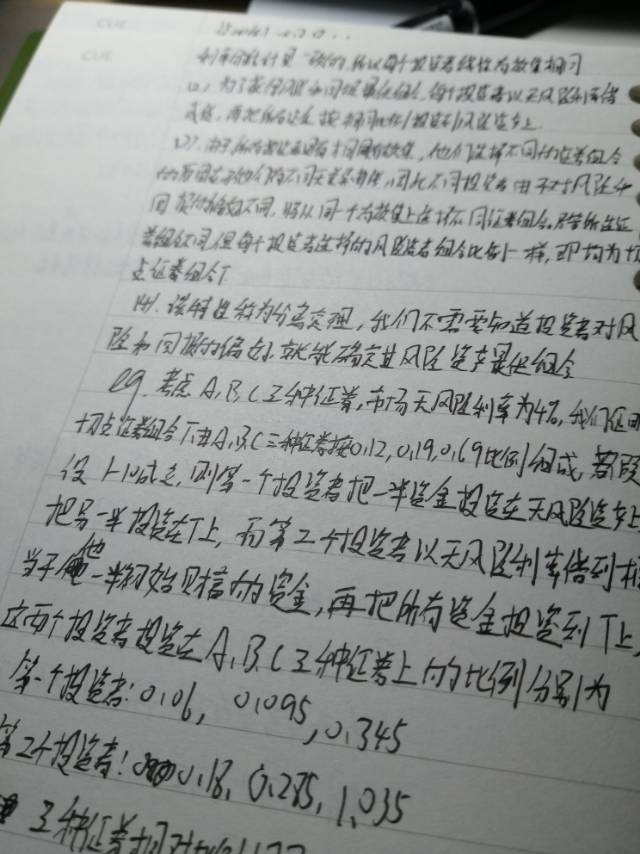 所以每个投资者线性有效集相同
(1)为了获得风险和回报最优组合,每个投资者以无风险利率借
或贷,再把所有资金按相同比例投资到风险资产上
(2)由于所有投资者有相同有效集,他们选择不同的证券组合
的原因在于他们有不同无差异曲线,因此不同投资者由于对风险和
回报偏好不同,将从同一个有效集上选择不同证券组合。尽管所选证
券组合不同,但每个投资者选择的风险资产组合比例一样,即均为切
点证券组合T
该特性称为分离定理,我们不需要知道投资者对风
险和回报的偏好,就能确定其风险资产最优组合
eg.考虑A,B,C三种证券,市场无风险利率为4%,我们证明
切点证券组合T由A,B,C三种证券按0.12,0.19,0.69比例组成,若
设上述成立,则第一个投资者把一半资金投资在无风险资产上
把另一半投资在T上,而第二个投资者以无风险利率借到相
当于他一半初始财富的资金,再把所有资金投资到T上,
这两个投资者投资在A,B,C三种证券上的比例分别为
第一个投资者:0.06, 0.095,0.345
第2个投资者:0.18,0.285,1.035
三种证券相对